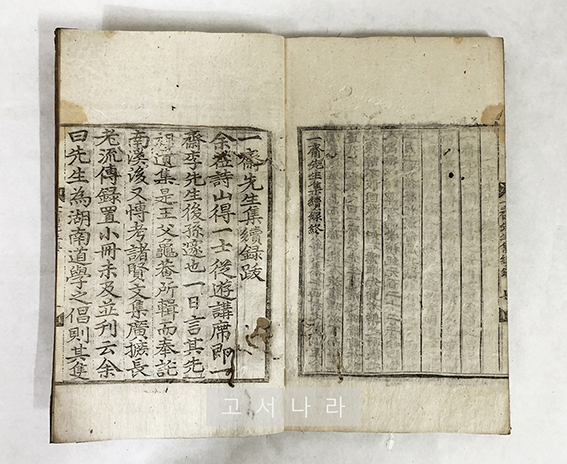 一齋先生集續録終
一齋先生集續録跋
余莅詩山得一士從遊講席即一
齋李先生後孫也一日言其先
遺集是王父龜菴所輯而奉託
南溪後又博考諸賢文集廣摭長
老流傳録置小冊未及並刊云余
曰先生為湖南道學之倡則其隻
고서나라